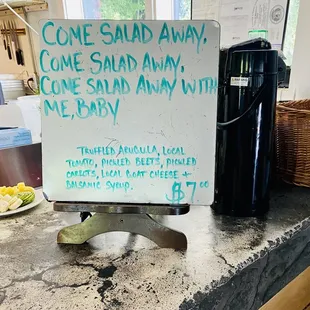 COME SALAD AWAY,
COME SALAD AWAY,
COME SALAD AWAY WITH
ME, BABY
TRUFFLED ARUGULA, LOCAL
TOMATO, PICKLED BEETS, PICKLED
CARROTS, LOCAL GOAT CHEESE +
BALSAMIC SYRUP.
$7.00